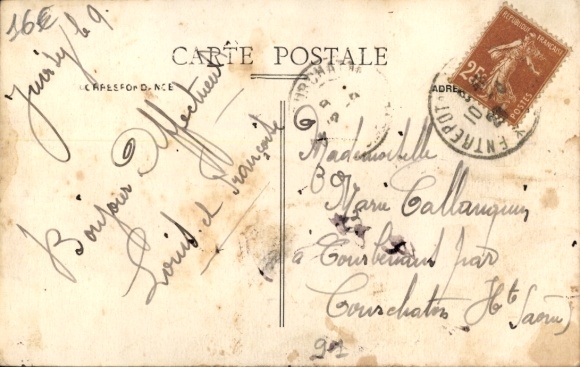 16€
CARTE POSTALE
CORRESPONDANCE
ADRESSE
le 9
Bonjour Affectueux
Louis et Françoise
Mademoiselle
Marie Callanquin
à Courbenant par
Courchaton Hte Saône
91
REPUBLIQUE FRANÇAISE
25
POSTES
ENTREPOT